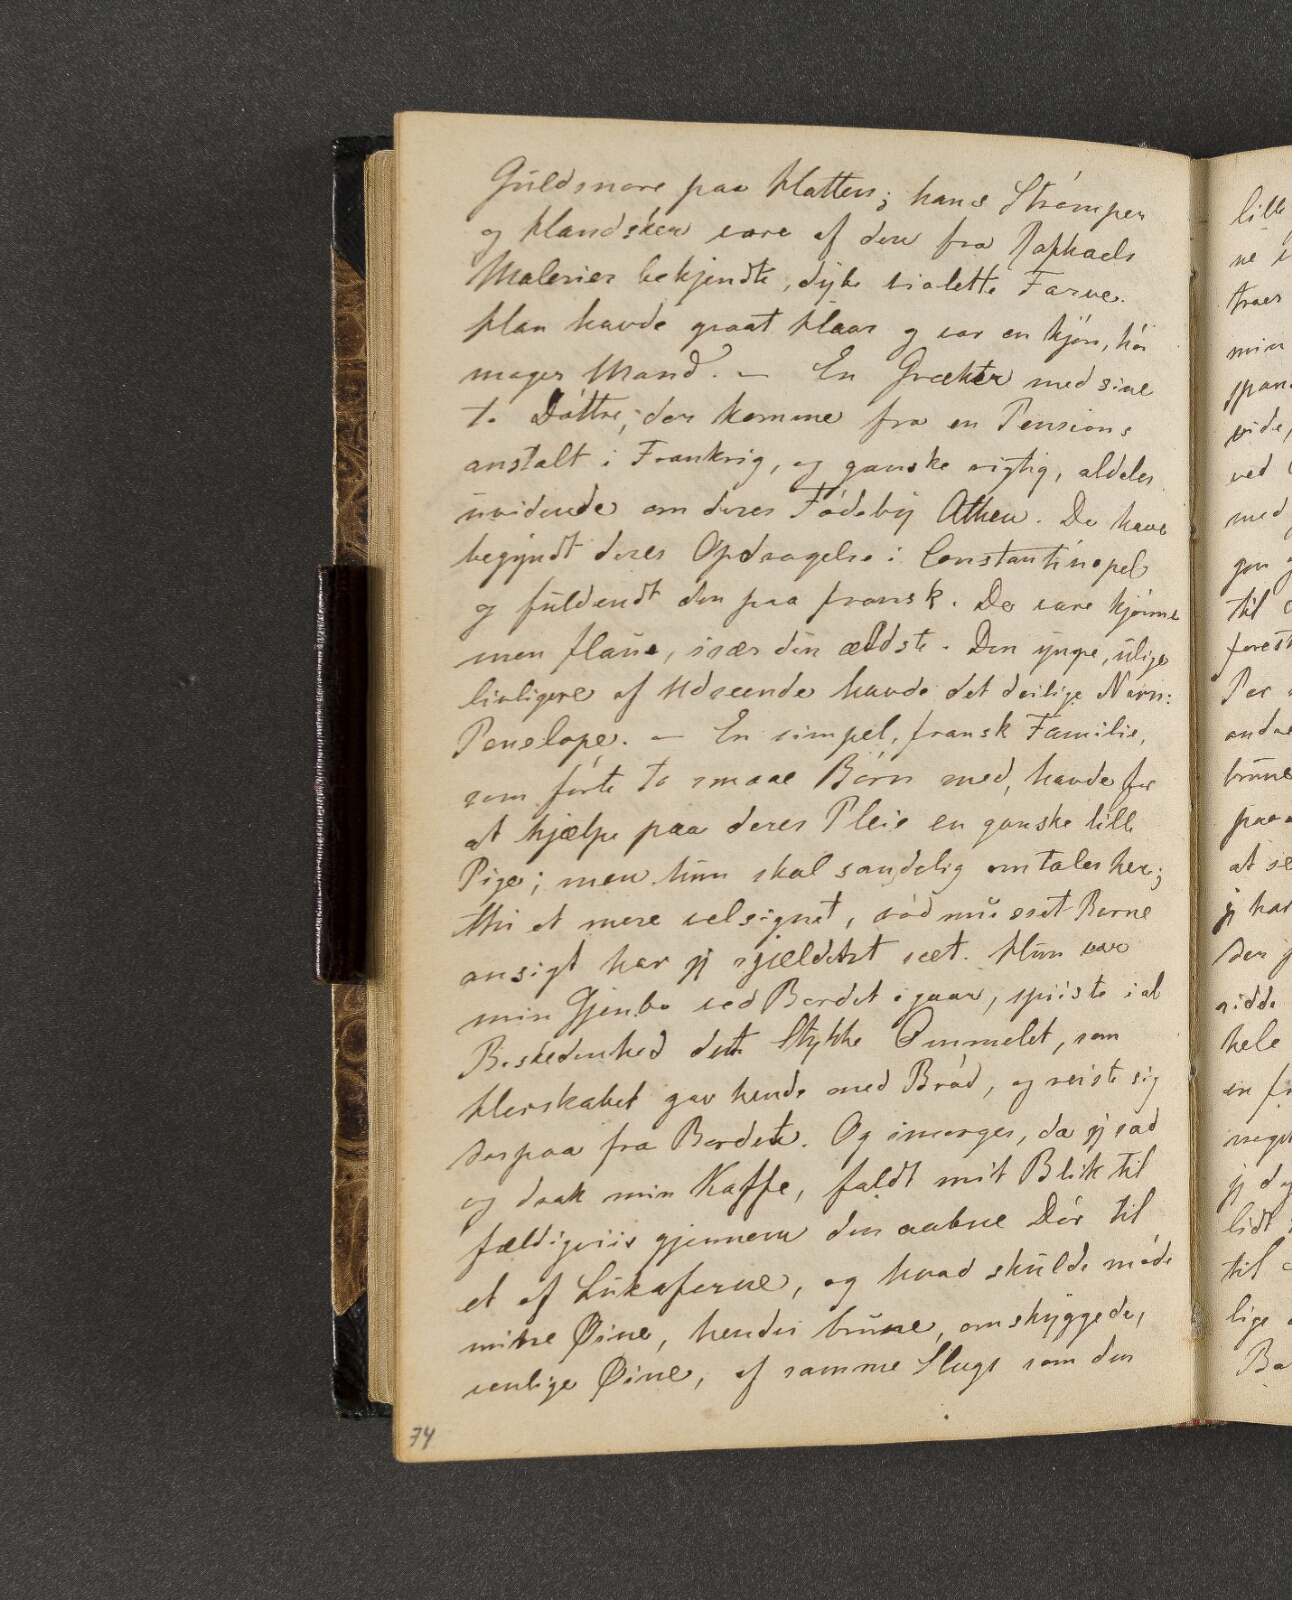 Guldsnore paa Hatten; hans Strømper
og Handsker vare af den fra Raphaels
Malerier bekjendte, dybe violette Farve.
Han havde graat Haar og var en kjøn, høi
mager Mand. — En Græker med sine
to Døttre, der komme fra en Pensions
anstalt i Frankrig, og ganske rigtig, aldeles
uvidende om deres Fødeby Athen. De have
begyndt deres Opdragelse i Constantinopel
og fuldendt den paa fransk. De vare kjønne
men flaue, især den ældste. Den yngre, ulige
livligere af Udseende havde det deilige Navn:
Penelope. — En simpel, fransk Familie,
som førte to smaae Børn med, havde for
at hjælpe paa deres Pleie en ganske lille
Pige; men hun skal sandelig omtales her;
thi et mere velsignet, sødmusset Barne
ansigt har jeg sjældent seet. Hun var
min Gjenbo ved Bordet igaar, spiiste i al
Beskedenhed dett Stykke Ommelet, som
Herskabet gav hende med Brød, og reiste sig
derpaa fra Bordet. Og imorges, da jeg sad
og drak min Kaffe, faldt mit Blik til
fældigviis gjennem den aabne Dør til
et af Lukaferne, og hvad skulde møde
mine Øine, hendes brune, omskyggede,
venlige Øine, af samme Slags som den
74
lille
ne
traer
min
vide,
ved
med
til
Per
brune
paa
at se
jeg har
hele
lidt
til
lige